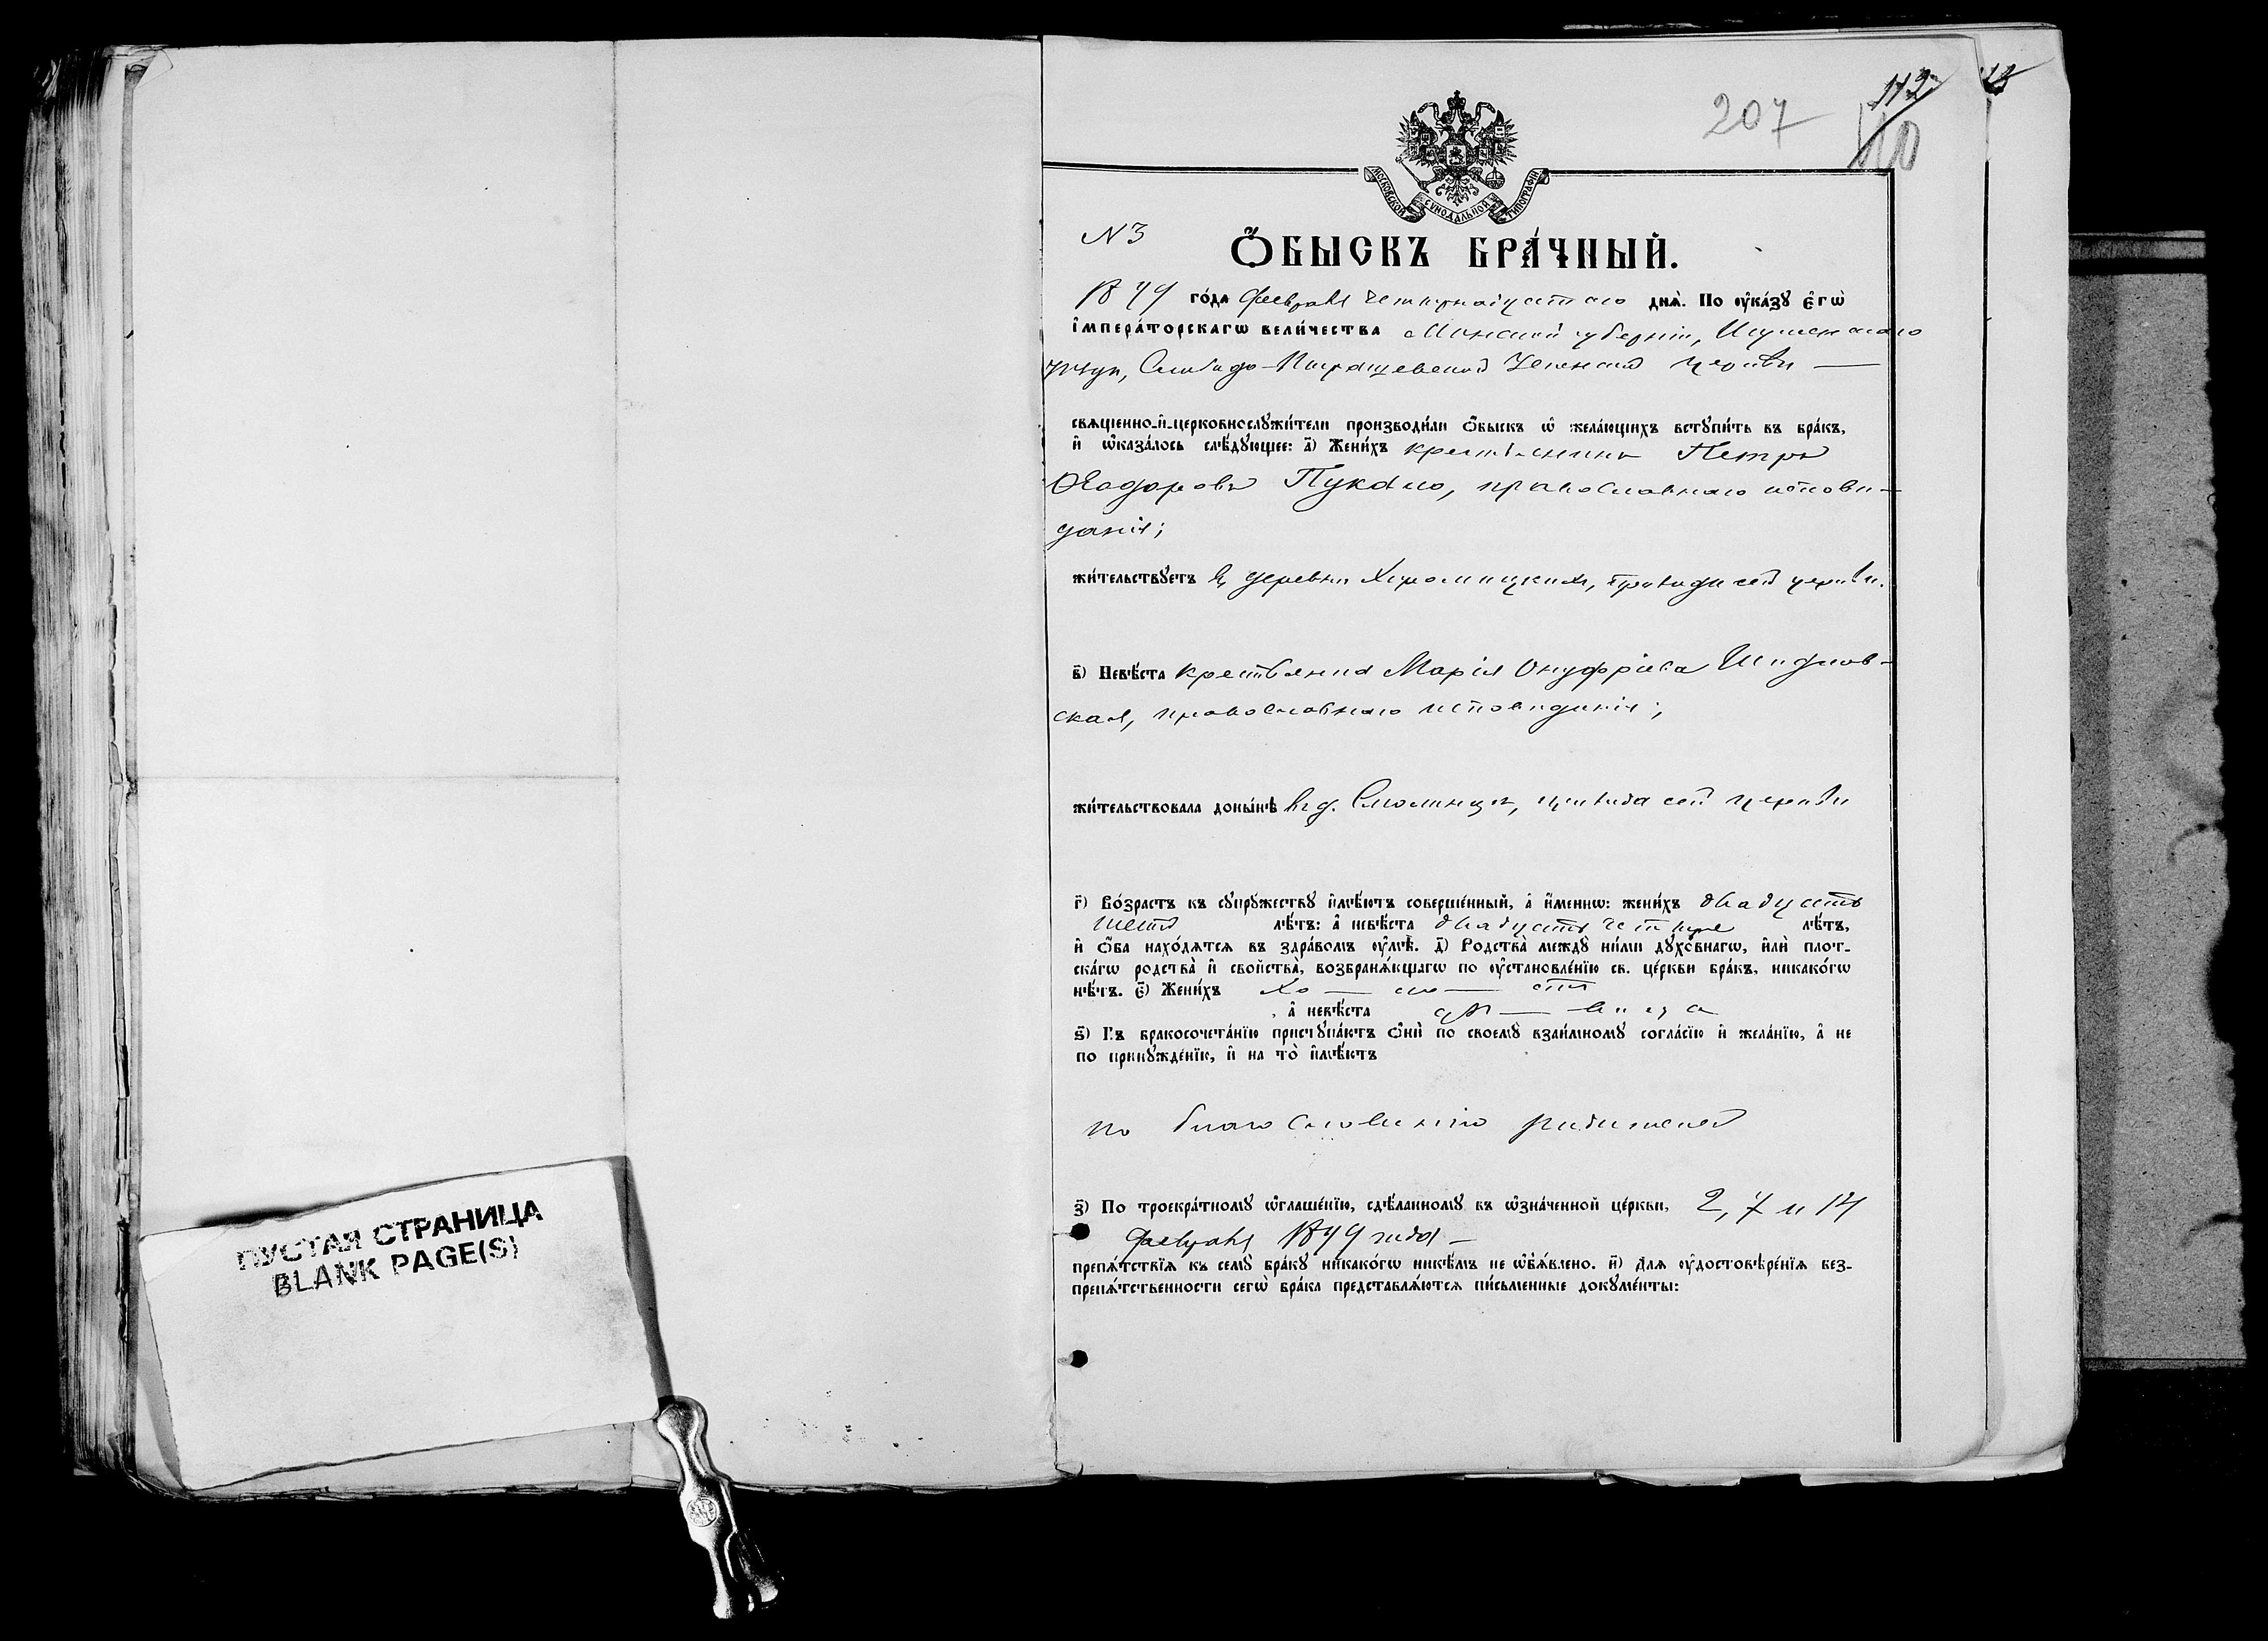 ПУСТАЯ СТРАНИЦА
BLANK PAGE(S)
207
112
110
МОСКОВСКОЙ СѴНОДАЛЬНОЙ ТИПОГРАФІИ
N 3
Ѻ҆БЫСКЪ БРА́ЧНЫЙ.
го́да Февраля четырнадцатаго днѧ̀. По ᲂу҆ка́зꙋ є҆гѡ̀
і҆мпера́торскагѡ вели́чества Минской губерніи, Игуменскаго
уѣзда, Слободо-Пырашевской Успенской церкви —
свѧщенно-и҆-церковнослꙋжи́тели производи́ли ѻ҆́быскъ ѡ҆ жела́ющихъ встꙋпи́ть въ бра́къ,
и҆ ѡ҆каза́лось слѣ́дꙋющее: а҃) Жени́хъ крестьянинъ Петръ
Ѳеодоровъ Пукало, православнаго исповѣ-
данія;
жи́тельствꙋетъ въ деревнѣ прихода сей церкви.
в҃) Невѣ́ста крестьянка Марія Онуфріева Шидлов-
ская, православнаго исповѣданія;
жи́тельствовала доны́нѣ въ д. прихода сей церкви
г҃) Во́зрастъ къ сꙋпрꙋ́жествꙋ и҆мѣ́ютъ соверше́нный, а҆ и҆́меннѡ: жени́хъ двадцать
шесть лѣ́тъ: а҆ невѣ́ста двадцать четыре лѣ́тъ,
и҆ ѻ҆́ба нахо́дѧтсѧ въ здра́вомъ ᲂу҆мѣ̀. д҃) Родства̀ междꙋ̀ ни́ми дꙋхо́внагѡ, и҆лѝ плот-
ска́гѡ родства̀ и҆ сво́йства̀, возбранѧ́ющагѡ по ᲂу҆становле́нїю св. це́ркви бра́къ, никако́гѡ
нѣ́тъ. є҃) Жени́хъ хо — ло — стъ
, а҆ невѣ́ста дѣ — вица
ѕ҃) Къ бракосочета́нїю пристꙋпа́ютъ ѻ҆нѝ по своемꙋ̀ взаи́мномꙋ согла́сїю и҆ жела́нїю, а҆ не
по принꙋжде́нїю, и҆ на то̀ и҆мѣ́ютъ
по благословенію родителей
з҃) По троекра́тномꙋ ѡ҆глаше́нїю, сдѣ́ланномꙋ въ ѡ҆зна́ченной це́ркви, 2, 7 и 14
Февраля года —
препѧ́тствїѧ къ семꙋ̀ бра́кꙋ никако́гѡ никѣ́мъ не ѡ҆б̾ѧ́влено. и҃) Длѧ ᲂу҆достовѣре́нїѧ без-
препѧ́тственности сегѡ̀ бра́ка представлѧ́ютсѧ пи́сьменные докꙋме́нты: